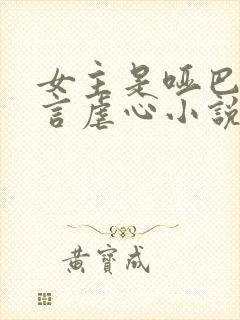 女主是哑巴
言虐心小説
黄寶成